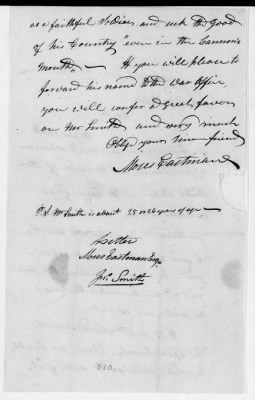 as a faithful Soldier, and seek the Good
of his Country "even in the Cannon's
mouth" — If you will please to
forward his name to the War Office
you will confer a great favor
on Mr Smith and very much
Oblige yours friend
Moses Eastman
P.S. Mr Smith is about 25 or 26 years of age —
Letter
Moses Eastman Esq.
Jno. Smith